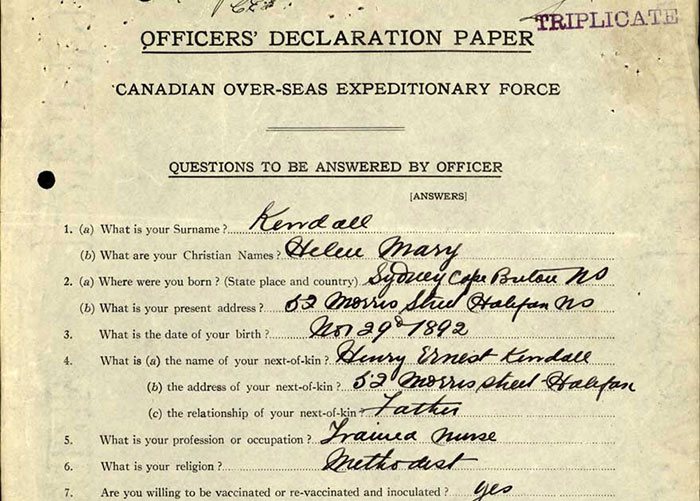 TRIPLICATE
OFFICERS' DECLARATION PAPER
CANADIAN OVER-SEAS EXPEDITIONARY FORCE
QUESTIONS TO BE ANSWERED BY OFFICER
[ANSWERS]
1. (a) What is your Surname? Kendall
(b) What are your Christian Names? Helen Mary
2. (a) Where were you born? (State place and country) Sydney Cape Breton NS
(b) What is your present address? 52 Morris Street Halifax NS
3. What is the date of your birth? Nov 29th 1892
4. What is (a) the name of your next-of-kin? Henry Ernest Kendall
(b) the address of your next-of-kin? 52 Morris Street Halifax
(c) the relationship of your next-of-kin? Father
5. What is your profession or occupation? Trained Nurse
6. What is your religion? Methodist
7. Are you willing to be vaccinated or re-vaccinated and inoculated? yes